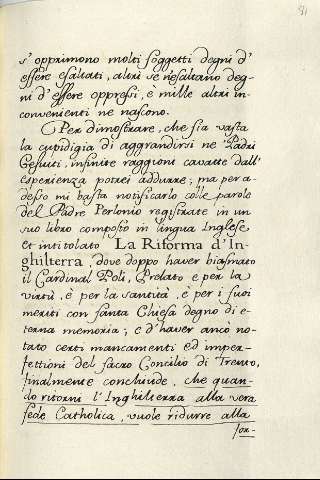 81
s'opprimono molti soggetti degni d'
essere esaltati, altri se n'esaltano deg-
ni d'essere oppressi, e mille altri in-
convenienti ne nascono.
Per dimostrare, che sia vasta
la cupidigia di aggrandirsi ne Padri
Gesuiti, infinite raggioni cavatte dall'
esperienza potrei addurre; ma per a-
desso mi basta notificarlo colle parole
del Padre Personio registrate in un
suo libro composto in lingua Inglese,
et intitolato La Riforma d'In-
ghilterra, dove doppo haver biasmato
il Cardinal Poli, Prelato e per la
virtù, e per la santità, e per i suoi
meriti con santa Chiesa degno di e-
terna memoria; e d'haver anco no-
tato certi mancamenti ed imper-
fettioni del sacro Concilio di Trento,
finalmente conchiude, che quan-
do ritorni l'Inghilterra alla vera
fede Catholica, vuole ridurre alla
for-